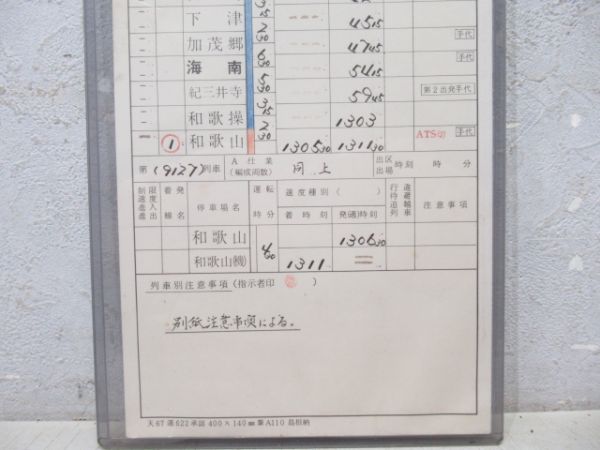 下津 2 30 45 15
加茂郷 47 45 手代
海南 6 30 54 15 手代
紀三井寺 5 30 59 45 第2出発手代
和歌操 3 15 1303
① 和歌山 2 30 1305 30 1311 30 ATS(2) 手代
第(9127)列車 A仕業(編成両数) 同上 出区出場 時刻 時 分
制限速度進進入出 着発線名 停車場名 運転時分 速度種別( ) 着時刻 発(通)時刻 行違待避追越列車 注意事項
和歌山 1306 30
和歌山(機) 4 30 1311 =
列車別注意事項(指示者印 )
別紙注意事項による。
天67運622承認 400×140㎜ 筆A110 島根納